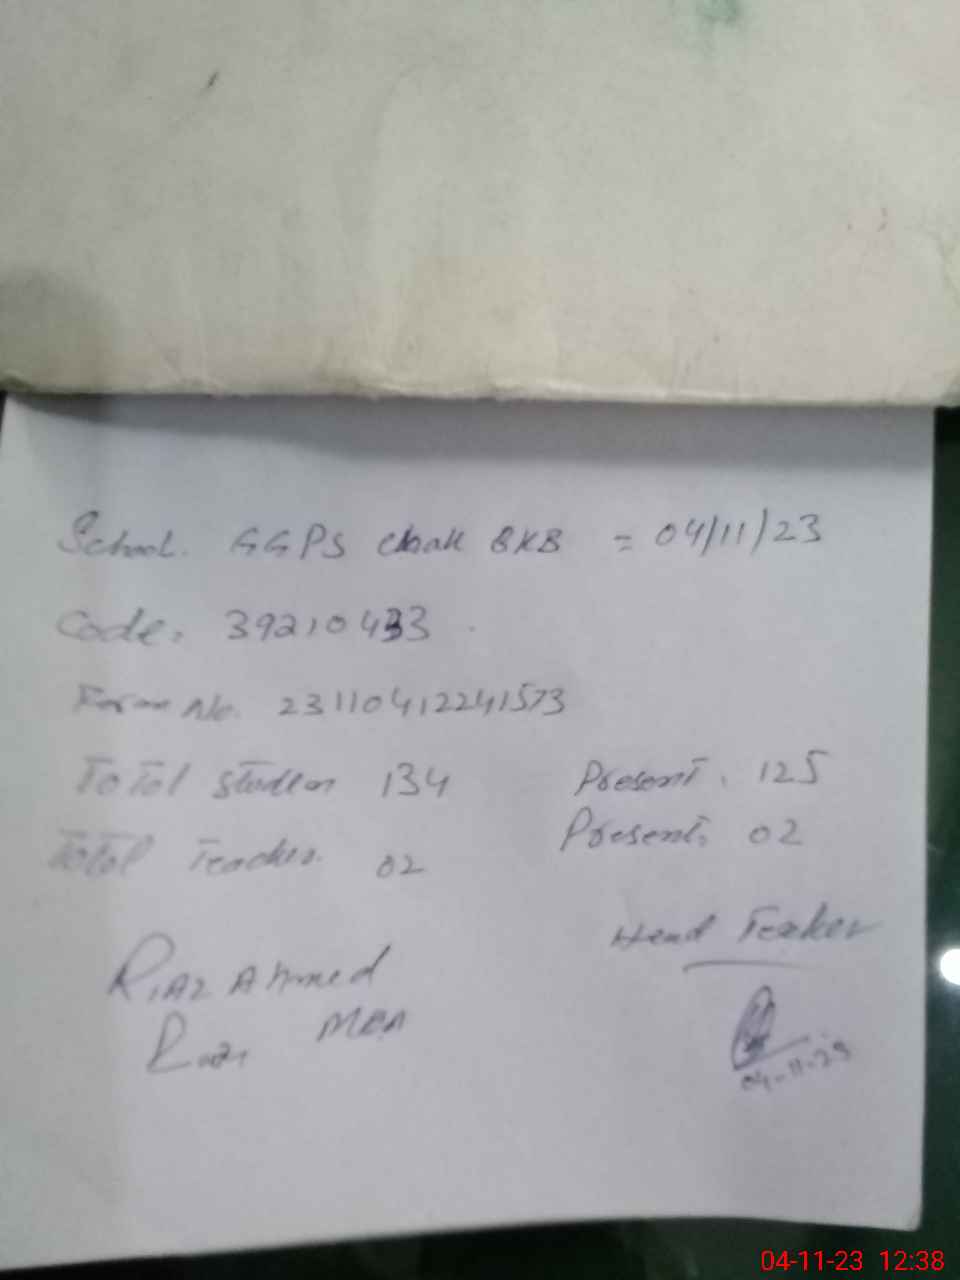 School. GGPS chak 8KB = 04/11/23
Code: 39210433
Form No. 23110412241573
Total studen 134 Present. 125
Total Teacher. 02 Present. 02
Head Teaker
Riaz Ahmed
MEA
04-11-23
04-11-23 12:38